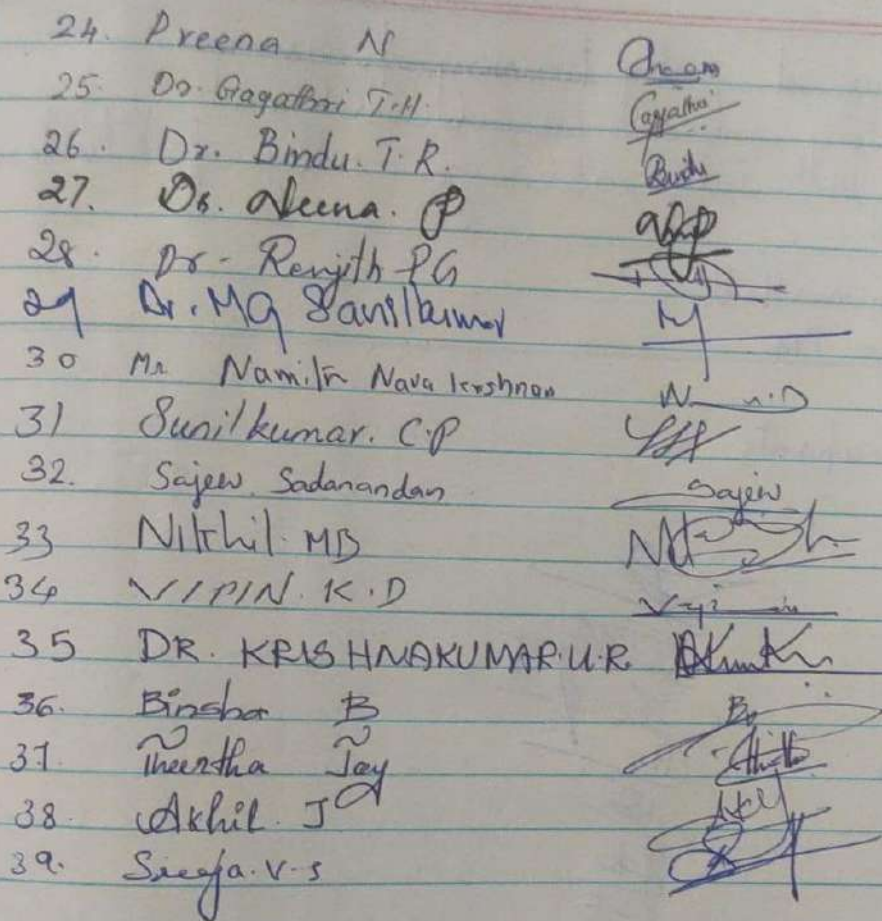 24. Preena N
25. Dr. Gagathri T.H. Gayathri
26. Dr. Bindu. T. R. Bindu
27. Dr. Neena. P
28. Dr - Renjith PG
29 Dr. MG Sanilkumar
30 Mr. Namith Nava Krishnan
31 Sunilkumar. C.P
32. Sajeev Sadanandan Sajeev
33 Nikhil. MB
34 VIPIN. K. D
35 DR. KRISHNAKUMAR. U. R.
36. Binsha B
37. Theertha Jay
38. Akhil. J
39. Sreeja. V. S